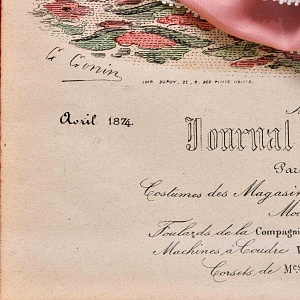 G Gonin
IMP. DUPUY, 22, R. DES PETITS HOTELS
Avril 1874.
Journal
Par
Costumes des Magasin
Mod
Foulards de la Compagni
Machines à Coudre W
Corsets de Mes